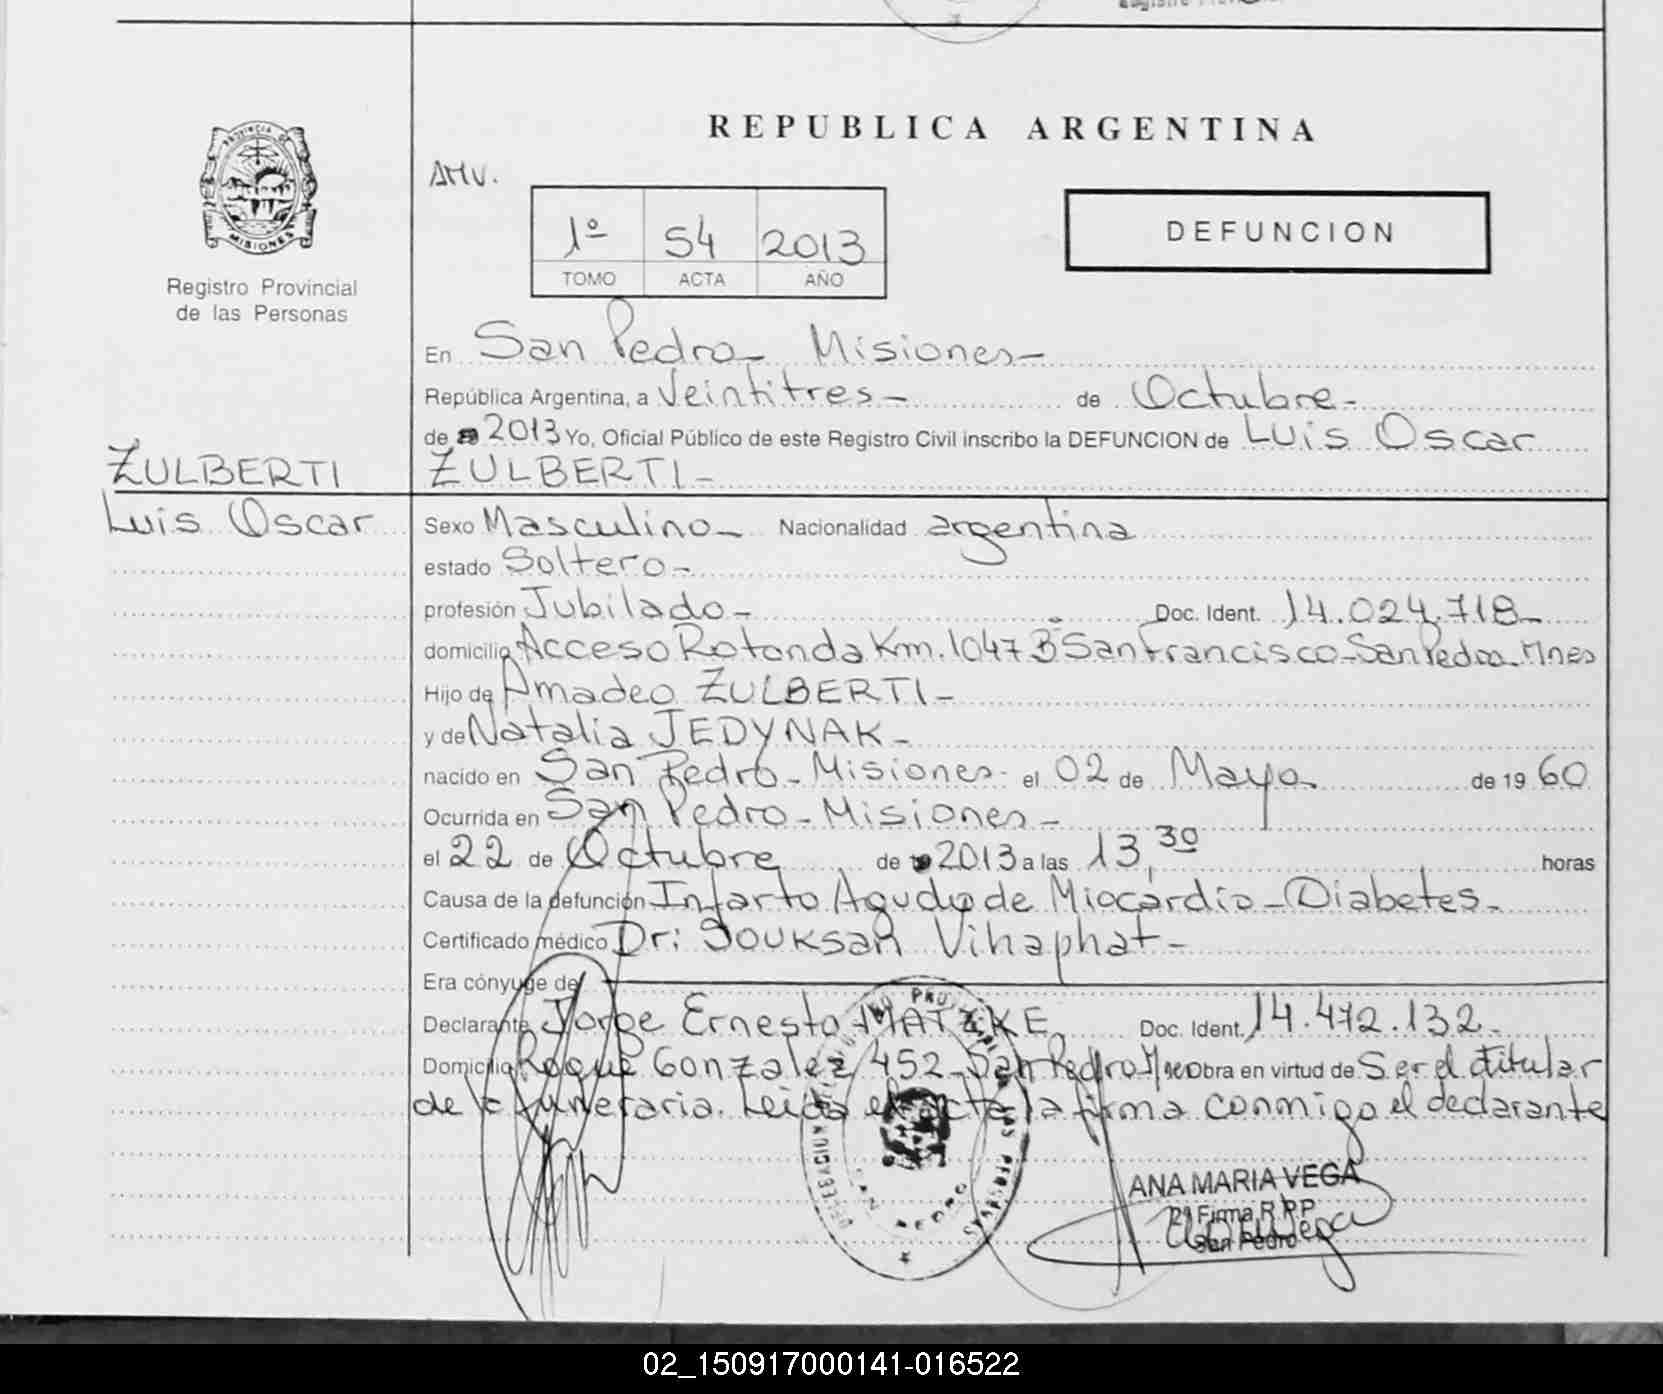 REPUBLICA ARGENTINA
PROVINCIA DE MISIONES
Registro Provincial
de las Personas
AMV.
1º 54 2013
TOMO ACTA AÑO
DEFUNCION
En San Pedro - Misiones -
República Argentina, a Veintitres - de Octubre -
de 2013 Yo, Oficial Público de este Registro Civil inscribo la DEFUNCION de Luis Oscar
ZULBERTI -
ZULBERTI
Luis Oscar
Sexo Masculino - Nacionalidad argentina
estado Soltero -
profesión Jubilado - Doc. Ident. 14.024.718 -
domicilio Acceso Rotonda Km. 1047 Bº San Francisco - San Pedro - Mnes
Hijo de Amadeo ZULBERTI -
y de Natalia JEDYNAK -
nacido en San Pedro - Misiones - el 02 de Mayo - de 1960
Ocurrida en San Pedro - Misiones -
el 22 de Octubre de 2013 a las 13,30 horas
Causa de la defunción Infarto Agudo de Miocardio - Diabetes -
Certificado médico Dr: Souksan Vihaphat -
Era cónyuge de
Declarante Jorge Ernesto MATZKE Doc. Ident. 14.472.132 -
Domicilio Roque Gonzalez 452 - San Pedro Mnes Obra en virtud de Ser el titular
de la funeraria. Leida el acta la firma conmigo el declarante
ANA MARIA VEGA
2ª Firma R.P.P.
San Pedro
02_150917000141-016522